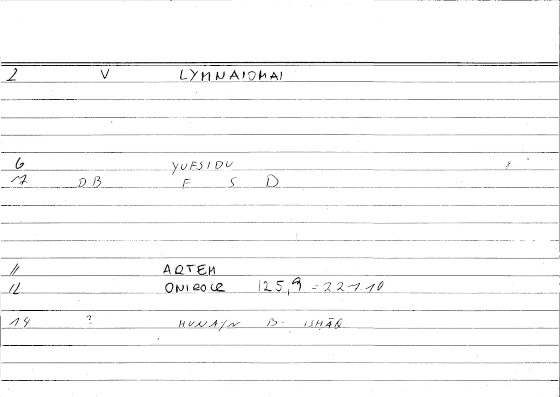 2 V LYMNAIOMAI
6 YUFSIDU ?
7 DB F S D
11 ARTEM
12 ONIROCR 125,9 = 221.10
14 ? HUNAYN B. ISHĀQ